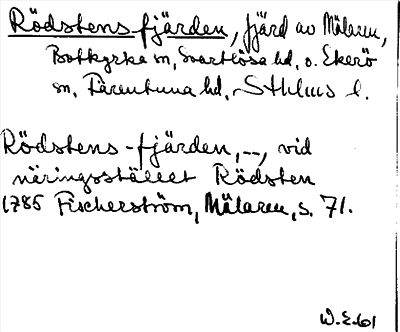 Rödstens-fjärden, fjärd av Mälaren,
Botkyrka sn, Svartlösa hd, o. Ekerö
sn, Färentuna hd, Sthlms l.
Rödstens-fjärden, --, vid
näringsstället Rödsten
1785 Fischerström, Mälaren, s. 71.
W.E.61